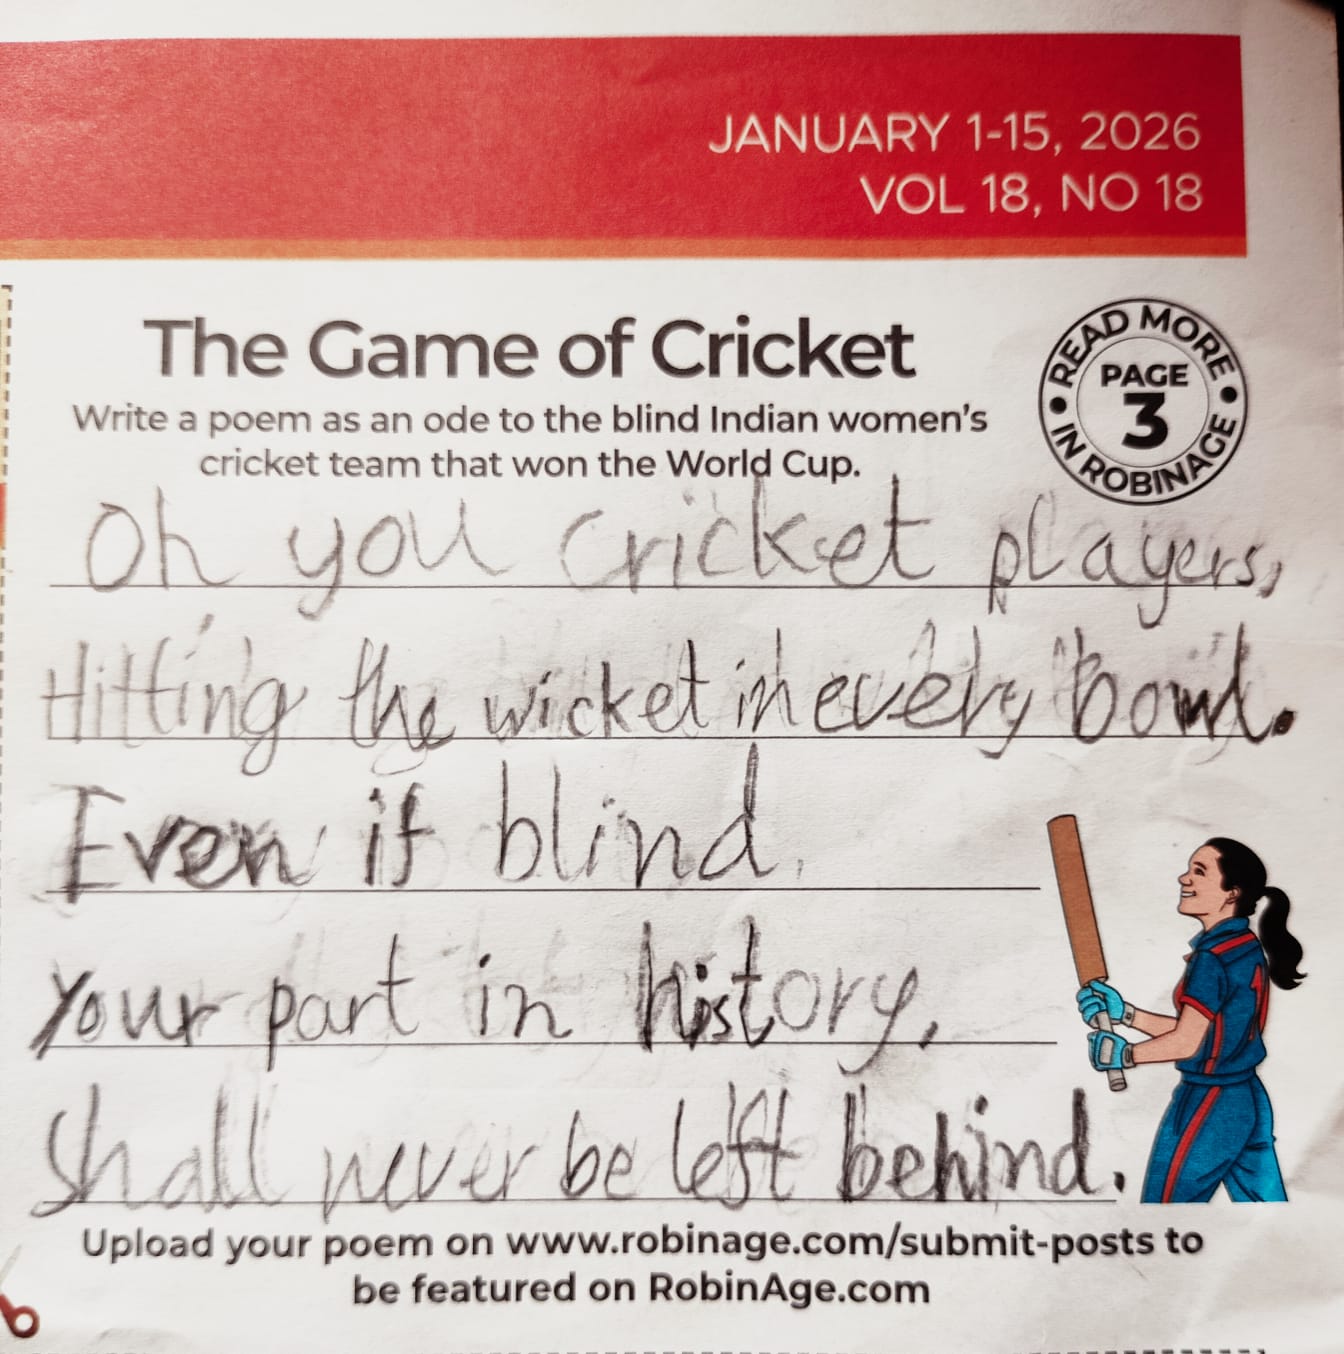 JANUARY 1-15, 2026
VOL 18, NO 18
The Game of Cricket
Write a poem as an ode to the blind Indian women's
cricket team that won the World Cup.
READ MORE
PAGE
3
IN ROBINAGE
Oh you cricket players,
Hitting the wicket in every
Even if blind,
Your part in history,
Shall never be left behind.
Upload your poem on www.robinage.com/submit-posts to
be featured on RobinAge.com